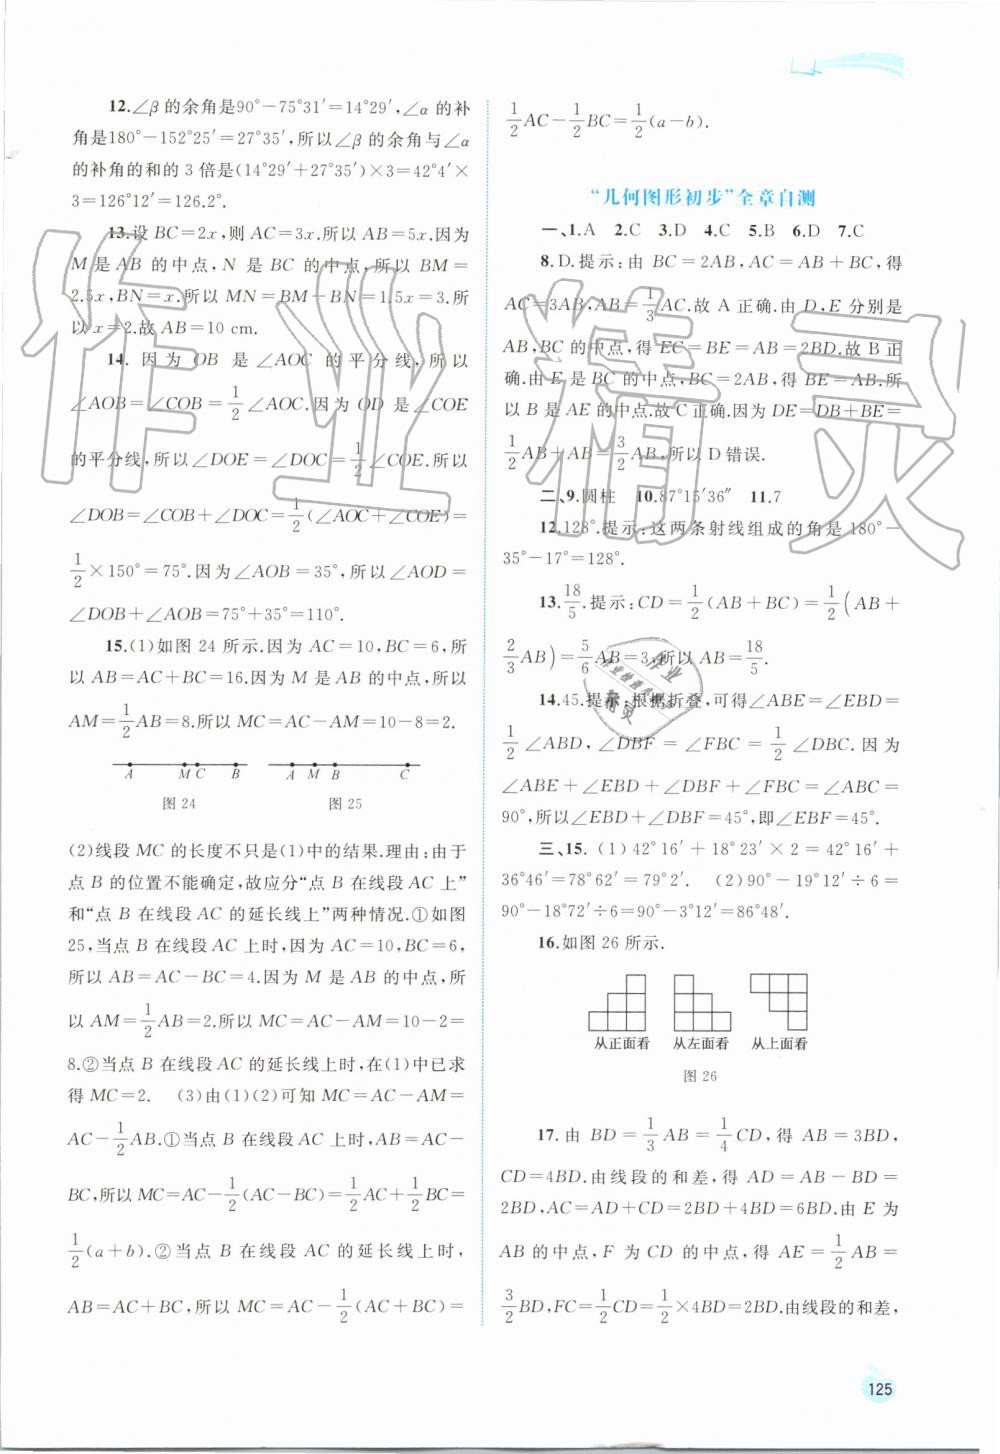 12.∠β的余角是90°－75°31′＝14°29′,∠α的补
角是180°－152°25′＝27°35′,所以∠β的余角与∠α
的补角的和的3倍是(14°29′＋27°35′)×3＝42°4′×
3＝126°12′＝126.2°.
13.设BC＝2x,则AC＝3x.所以AB＝5x.因为
M是AB的中点,N是BC的中点,所以BM＝
2.5x,BN＝x.所以MN＝BM－BN＝1.5x＝3.所
以x＝2.故AB＝10 cm.
14.因为OB是∠AOC的平分线,所以
∠AOB＝∠COB＝1/2∠AOC.因为OD是∠COE
的平分线,所以∠DOE＝∠DOC＝1/2∠COE.所以
∠DOB＝∠COB＋∠DOC＝1/2(∠AOC＋∠COE)＝
1/2×150°＝75°.因为∠AOB＝35°,所以∠AOD＝
∠DOB＋∠AOB＝75°＋35°＝110°.
15.(1)如图24所示.因为AC＝10,BC＝6,所
以AB＝AC＋BC＝16.因为M是AB的中点,所以
AM＝1/2AB＝8.所以MC＝AC－AM＝10－8＝2.
A M C B A M B C
图24 图25
(2)线段MC的长度不只是(1)中的结果.理由:由于
点B的位置不能确定,故应分“点B在线段AC上”
和“点B在线段AC的延长线上”两种情况.①如图
25,当点B在线段AC上时,因为AC＝10,BC＝6,
所以AB＝AC－BC＝4.因为M是AB的中点,所
以AM＝1/2AB＝2.所以MC＝AC－AM＝10－2＝
8.②当点B在线段AC的延长线上时,在(1)中已求
得MC＝2. (3)由(1)(2)可知MC＝AC－AM＝
AC－1/2AB.①当点B在线段AC上时,AB＝AC－
BC,所以MC＝AC－1/2(AC－BC)＝1/2AC＋1/2BC＝
1/2(a＋b).②当点B在线段AC的延长线上时,
AB＝AC＋BC,所以MC＝AC－1/2(AC＋BC)＝
1/2AC－1/2BC＝1/2(a－b).
“几何图形初步”全章自测
一、1.A 2.C 3.D 4.C 5.B 6.D 7.C
8.D.提示:由BC＝2AB,AC＝AB＋BC,得
AC＝3AB,AB＝1/3AC.故A正确.由D,E分别是
AB,BC的中点,得EC＝BE＝AB＝2BD.故B正
确.由E是BC的中点,BC＝2AB,得BE＝AB.所
以B是AE的中点.故C正确.因为DE＝DB＋BE＝
1/2AB＋AB＝3/2AB,所以D错误.
二、9.圆柱 10.87°15′36″ 11.7
12.128°.提示:这两条射线组成的角是180°－
35°－17°＝128°.
13.18/5.提示:CD＝1/2(AB＋BC)＝1/2(AB＋
2/3AB)＝5/6AB＝3,所以AB＝18/5.
14.45.提示:根据折叠,可得∠ABE＝∠EBD＝
1/2∠ABD,∠DBF＝∠FBC＝1/2∠DBC.因为
∠ABE＋∠EBD＋∠DBF＋∠FBC＝∠ABC＝
90°,所以∠EBD＋∠DBF＝45°,即∠EBF＝45°.
三、15.(1)42°16′＋18°23′×2＝42°16′＋
36°46′＝78°62′＝79°2′. (2)90°－19°12′÷6＝
90°－18°72′÷6＝90°－3°12′＝86°48′.
16.如图26所示.
从正面看 从左面看 从上面看
图26
17.由BD＝1/3AB＝1/4CD,得AB＝3BD,
CD＝4BD.由线段的和差,得AD＝AB－BD＝
2BD,AC＝AD＋CD＝2BD＋4BD＝6BD.由E为
AB的中点,F为CD的中点,得AE＝1/2AB＝
3/2BD,FC＝1/2CD＝1/2×4BD＝2BD.由线段的和差,
125
作业精灵